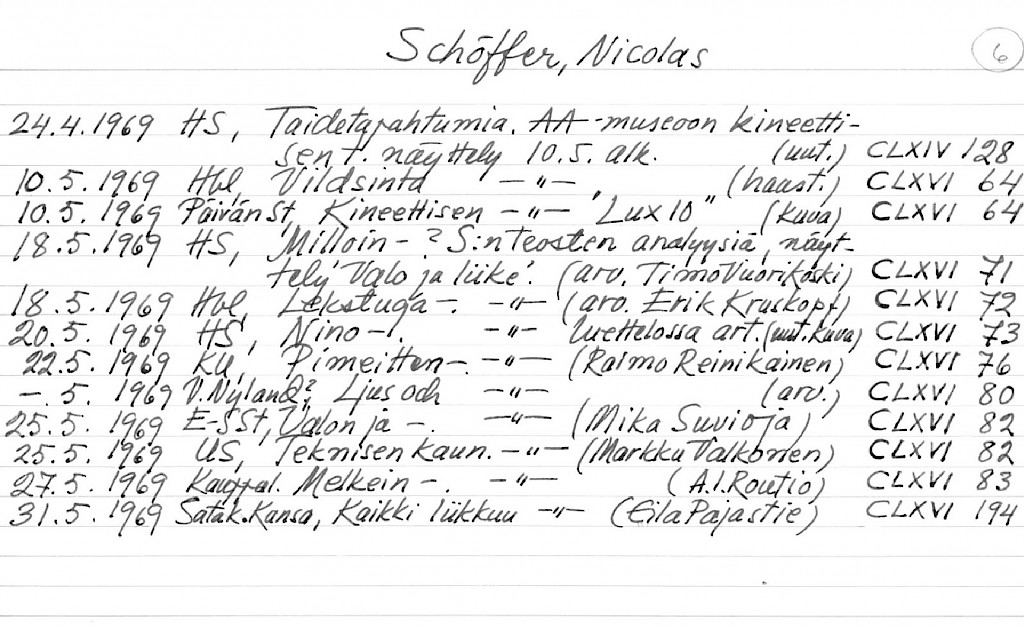 Schöffer, Nicolas 6
24.4.1969 HS, Taidetapahtumia. AA-museoon kineetti-
sen t. näyttely 10.5. alk. (uut.) CLXIV 128
10.5.1969 Hbl, Vildsinta —"— (haast.) CLXVI 64
10.5.1969 PäivänSt, Kineettisen —"— "Lux 10" (kuva) CLXVI 64
18.5.1969 HS, Milloin-? S:n teosten analyysiä, näyt-
tely 'Valo ja liike'. (arv. Timo Vuorikoski) CLXVI 71
18.5.1969 Hbl, Lekstuga-. —"— (arv. Erik Kruskopf) CLXVI 72
20.5.1969 HS, Nino-. —"— luettelossa art. (uut. kuva) CLXVI 73
22.5.1969 KU, Pimeitten-. —"— (Raimo Reinikainen) CLXVI 76
-.5.1969 V.Nyland?, Ljus och —"— (arv.) CLXVI 80
25.5.1969 E-SSt, Valon ja -. —"— (Mika Suvioja) CLXVI 82
25.5.1969 US, Teknisen kaun. —"— (Markku Valkonen) CLXVI 82
27.5.1969 Kauppal. Melkein-. —"— (A.I. Routio) CLXVI 83
31.5.1969 Satak.Kansa, Kaikki liikkuu —"— (Eila Pajastie) CLXVI 194